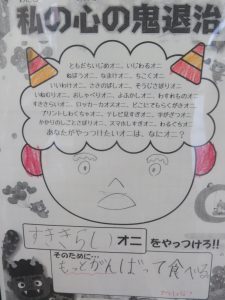 私の心の鬼退治
ともだちいじめオニ、いじわるオニ
ねぼうオニ、なまけオニ、ちこくオニ
いいわけオニ、さきのばしオニ、そうじさぼりオニ
いねむりオニ、おしゃべりオニ、よふかしオニ、わすれものオニ
すききらいオニ、ロッカーカオスオニ、どこにでもらくがきオニ
プリントしわくちゃオニ、テレビ見すぎオニ、字がざつオニ
かかりのしごとさぼりオニ、スマホしすぎオニ、わるぐちオニ
あなたがやっつけたいオニは、なにオニ?
すききらい オニ をやっつけろ!!
そのために…
もっとがんばって食べる